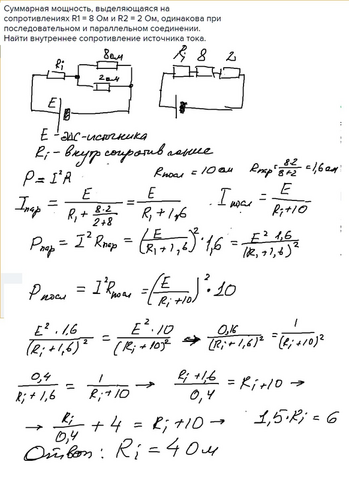 Суммарная мощность, выделяющаяся на
сопротивлениях R1 = 8 Ом и R2 = 2 Ом, одинакова при
последовательном и параллельном соединении.
Найти внутреннее сопротивление источника тока.
Ri 8ом 2ом E
Ri 8 2
E - эдс-источника
Ri - внутр сопротивление
Rпосл = 10 ом Rпар = 8·2/(8+2) = 1,6 ом
P = I²R
Iпар = E/(Ri + 8·2/(2+8)) = E/(Ri + 1,6) Iпосл = E/(Ri+10)
Pпар = I² Rпар = (E/(Ri+1,6))² · 1,6 = E² 1,6/(Ri+1,6)²
Pпосл = I² Rпосл = (E/(Ri+10))² · 10
E² · 1,6/(Ri+1,6)² = E² · 10/(Ri+10)² → 0,16/(Ri+1,6)² = 1/(Ri+10)²
0,4/(Ri+1,6) = 1/(Ri+10) → (Ri+1,6)/0,4 = Ri+10 →
→ Ri/0,4 + 4 = Ri+10 → 1,5·Ri = 6
Ответ: Ri = 4 Ом